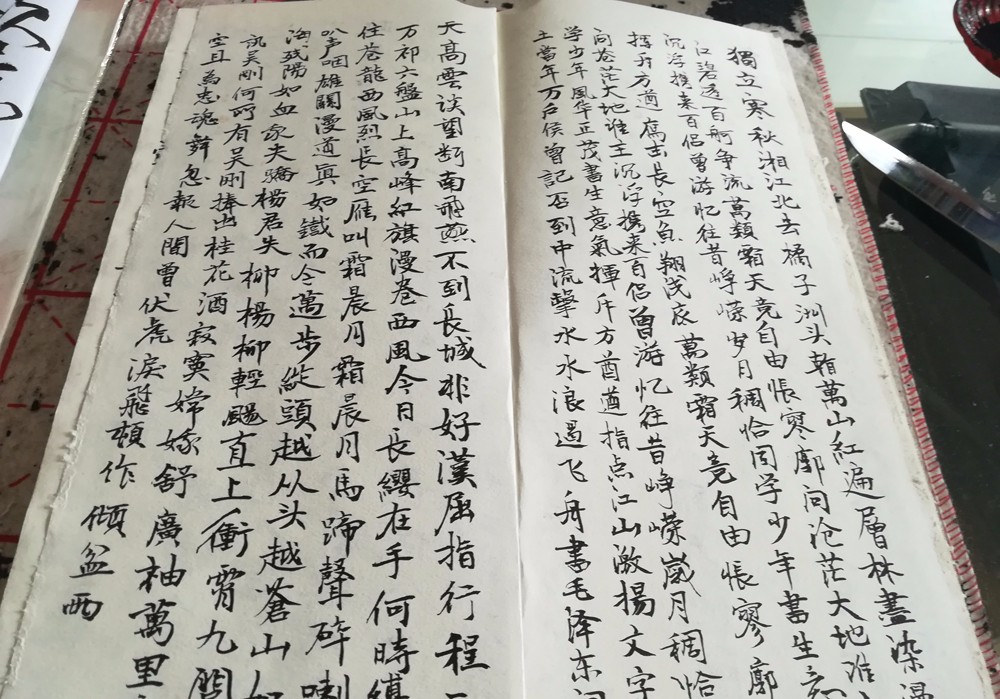 獨立寒秋湘江北去橘子洲头看萬山紅遍層林盡染漫
江碧透百舸争流萬類霜天竞自由悵寥廓问沧茫大地谁
沉浮携来百侣曾游忆往昔峥嵘岁月稠恰同学少年書生意
揮斥方遒鹰击长空鱼翔浅底萬類霜天竞自由悵寥廓
问苍茫大地谁主沉浮携来百侣曾游忆往昔峥嵘崴月稠恰
学少年風华正茂書生意氣揮斥方酋遒指点江山激揚文字
土當年万户侯曾記否到中流擊水水浪遏飞舟書毛泽东词
天高雲淡望断南飛燕不到長城非好漢屈指行程
万祁六盤山上高峰紅旗漫卷西風今日長纓在手何時縛
住苍龍西風烈長空雁叫霜晨月霜晨月馬蹄聲碎喇
叭声咽雄關漫道真如鐵而今邁步從頭越从头越蒼山如
海残陽如血我失骄楊君失柳楊柳輕颺直上衝霄九
訊吴刚何所有吴刚捧出桂花酒寂寞嫦娥舒廣袖萬里
空且為忠魂舞忽報人間曾伏虎淚飛頓作倾盆雨